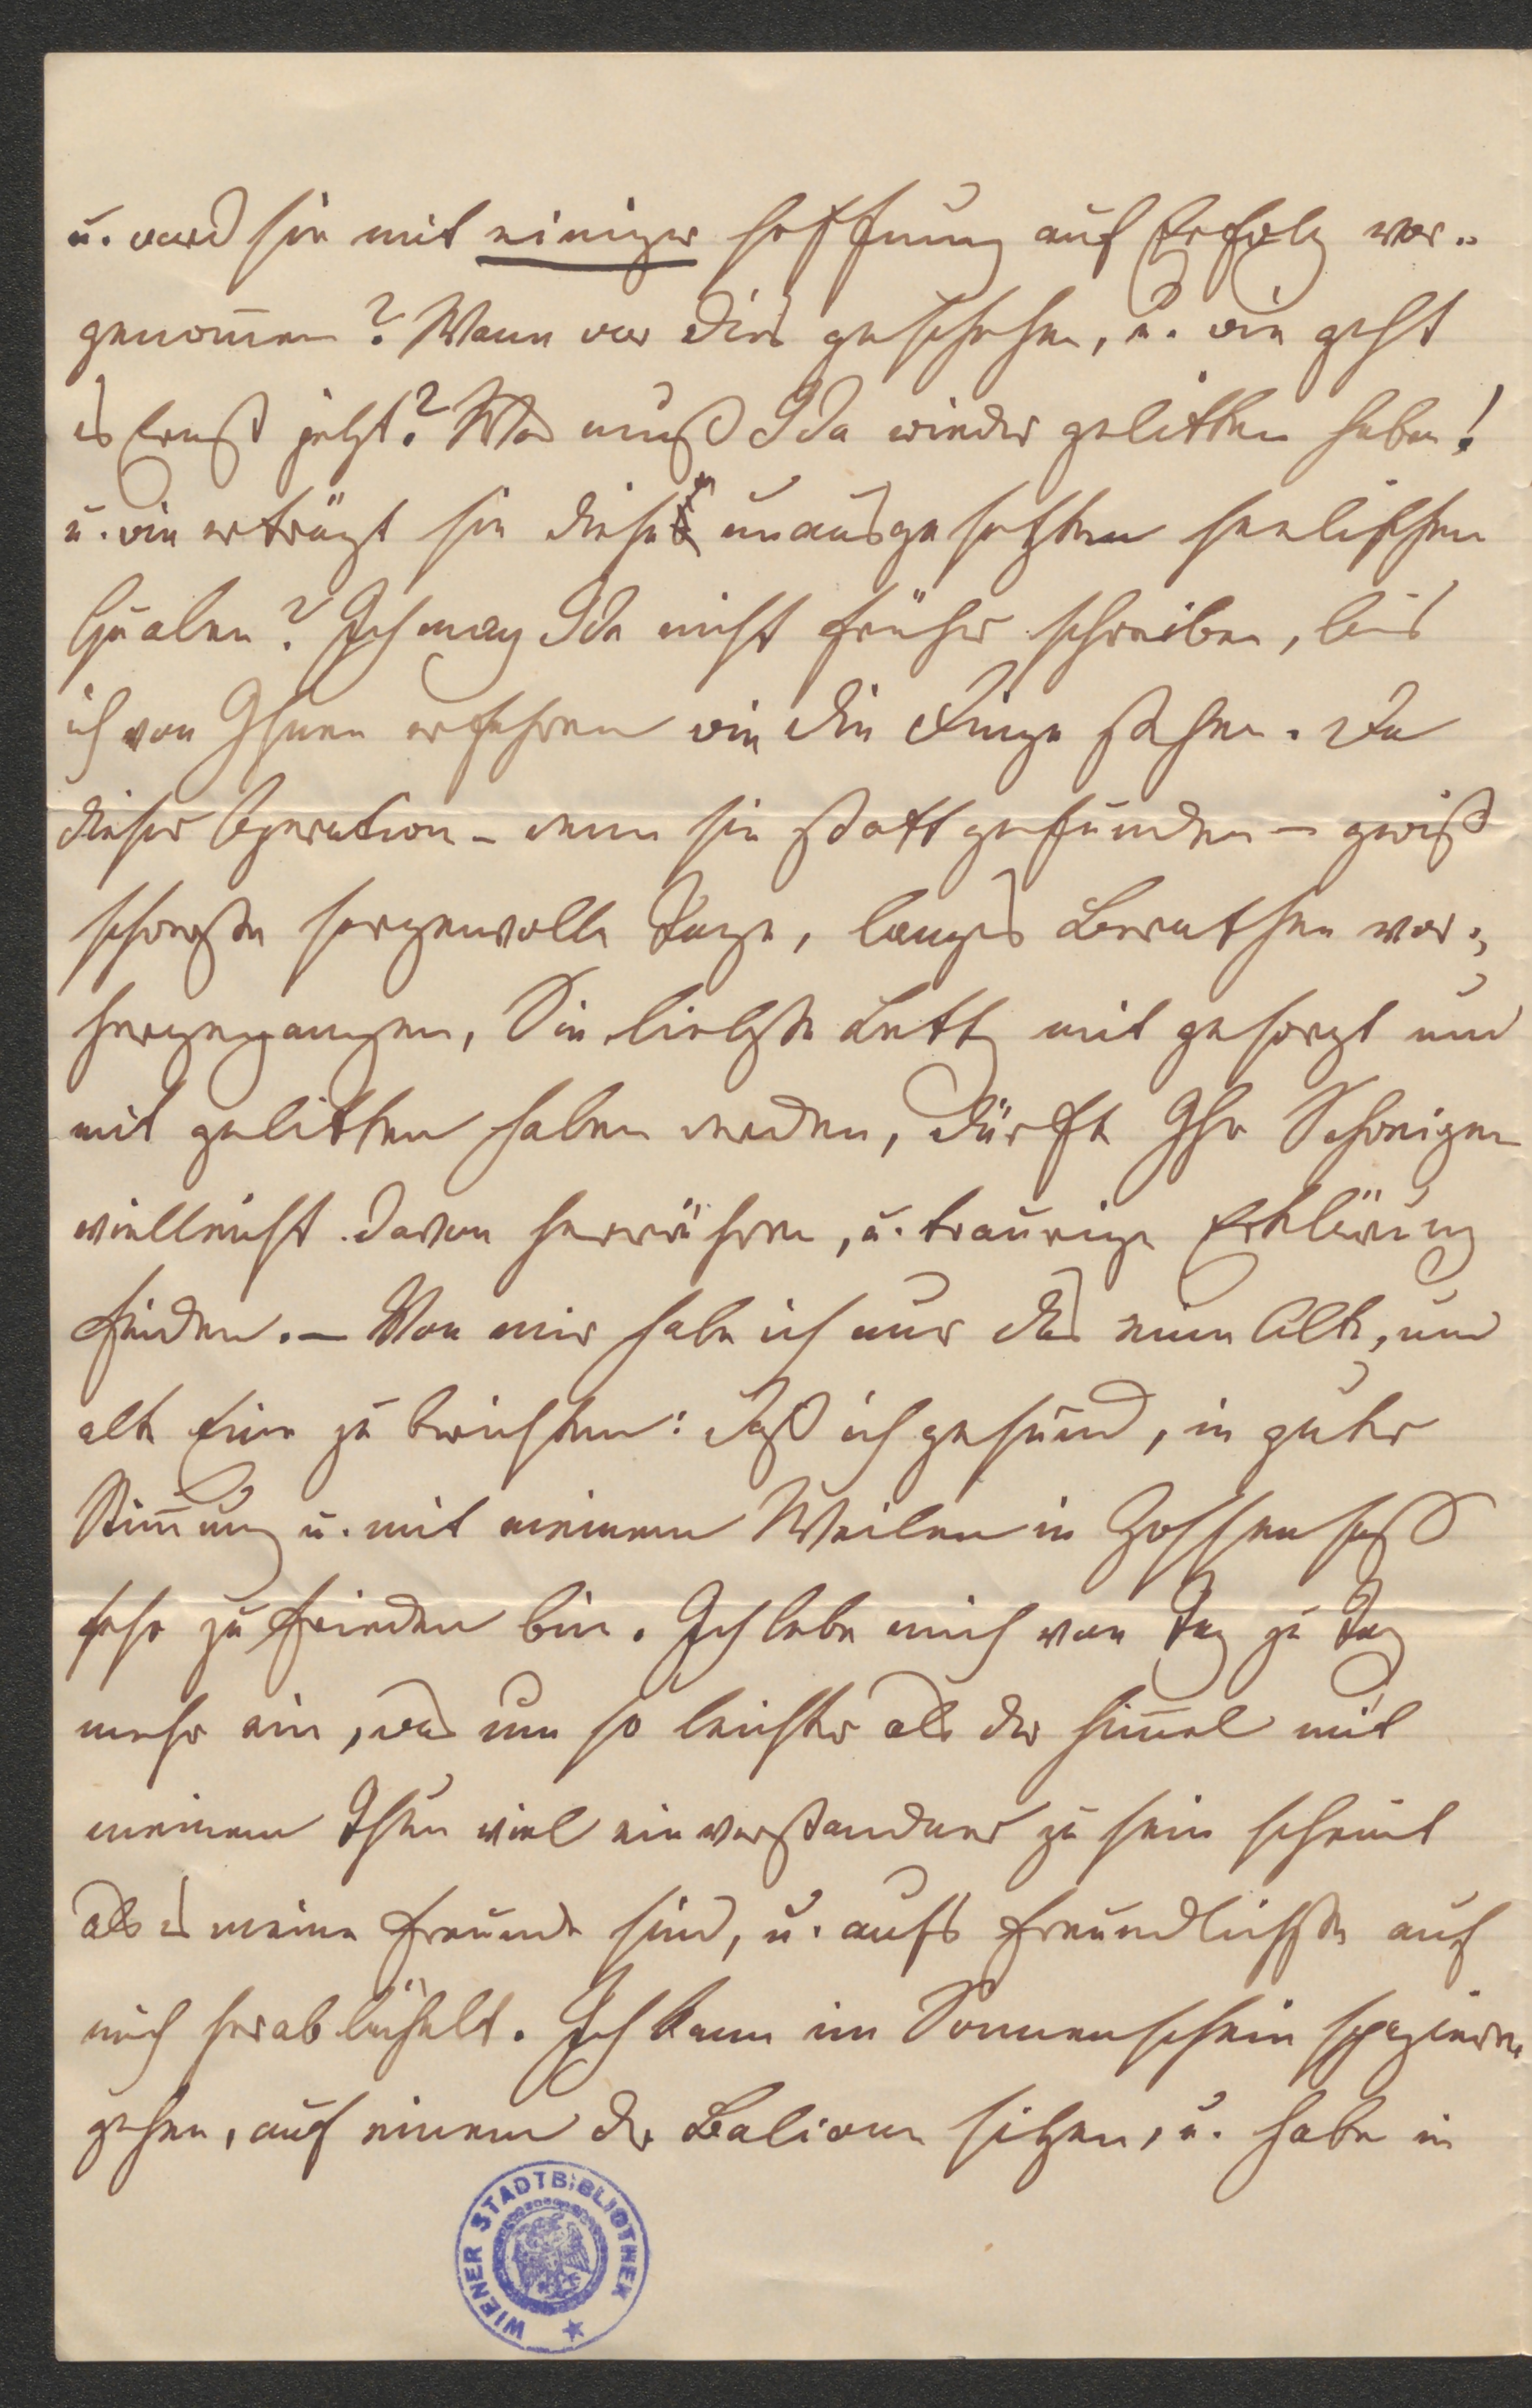 u. ward sie mit einiger Hoffnung auf Erfolg vor-
genom̅en? Wann war dies geschehen, u. wie geht
es Ernst jetzt? Was muß Ida wieder gelitten haben!
u. wie erträgt sie diese unausgesetzten seelischen
Qualen? Ich mag Ida nicht früher schreiben, bis
ich von Ihnen erfahren wie die Dinge stehen. Da
dieser Operation – wenn sie stattgefunden – gewiß
schwerste sorgenvolle Tage, langes Berathen vor-
hergegangen, Sie liebste Betty mit gesorgt und
mit gelitten haben werden, dürfte Ihr Schweigen
vielleicht davon herrühren, u. traurige Erklärung
finden. – Von mir habe ich nur das eine Alte, und
alte Eine zu berichten: daß ich gesund, in guter
Stim̅ung u. mit meinem Weilen in Gossensaß
sehr zufrieden bin. Ich lebe mich von Tag zu Tag
mehr ein, was um so leichter als der Him̅el mit
meinem Thun viel einverstandner zu sein scheint
als es meine Freunde sind, u. aufs freundlichste auf
mich herablächelt. Ich kann im Sonnenschein spazieren
gehen, auf einem der Balione sitzen, u. habe in
WIENER STADTBIBLIOTHEK